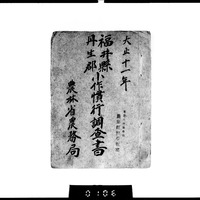 大正十一年
福井縣
丹生郡
小作慣行調査書
農林省農務局
0106